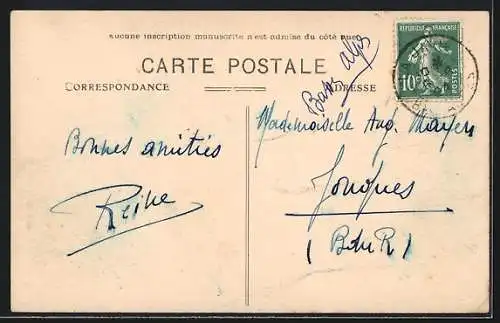 aucune inscription manuscrite n'est admise du côté vue
CARTE POSTALE
CORRESPONDANCE
ADRESSE
Basses Alpes
RÉPUBLIQUE FRANÇAISE
10c
POSTES
Bonnes amitiés
Reine
Mademoiselle Aug.
Jouques
(B du R)